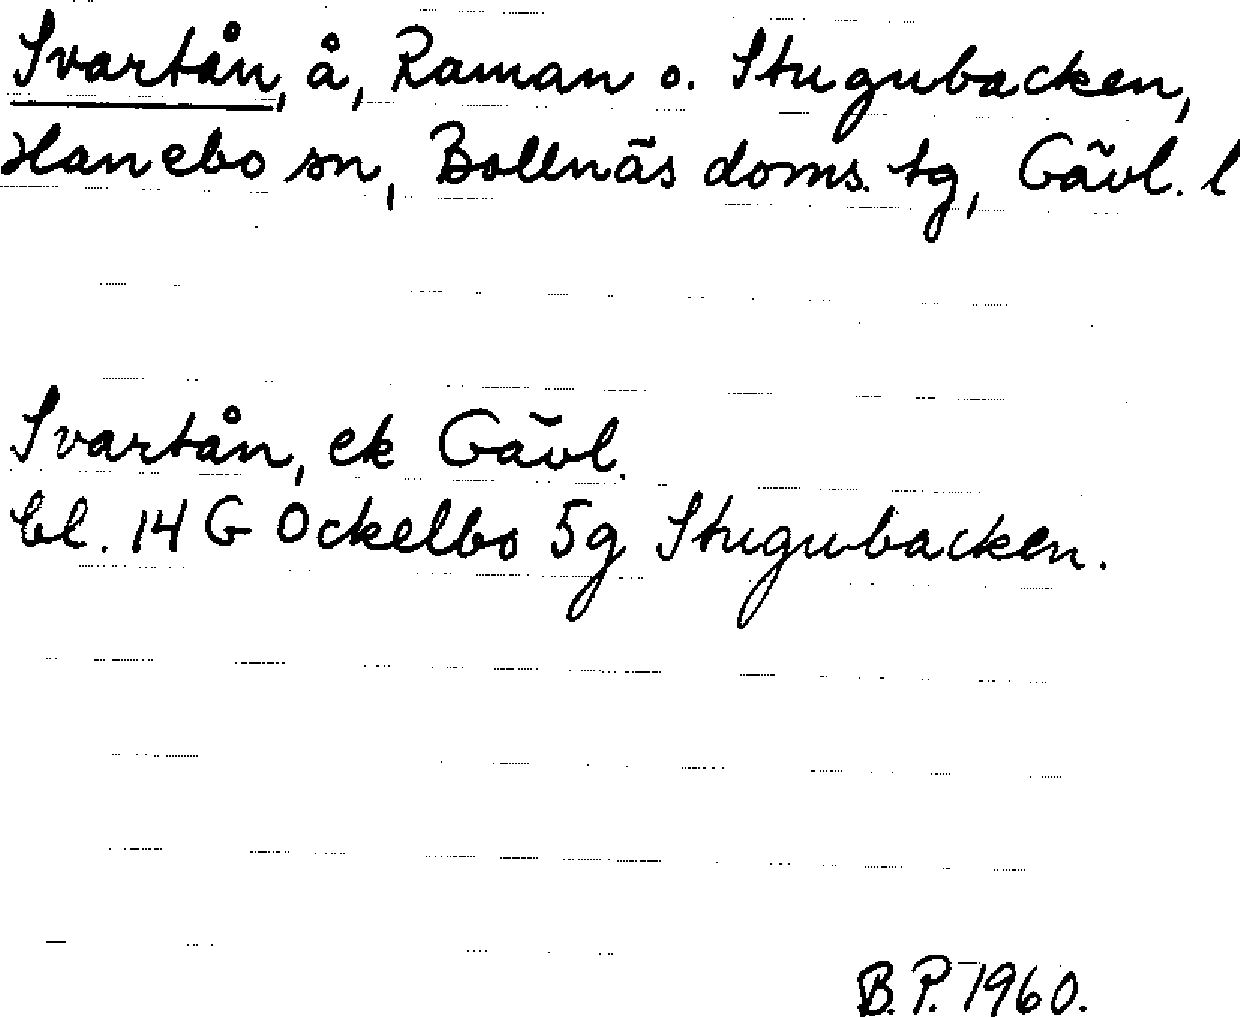 Svartån, å, Raman o. Stugubacken,
Hanebo sn, Bollnäs doms. tg, Gävl. l
Svartån, ek Gävl.
bl. 14 G Ockelbo 5g Stugubacken.
B.P. 1960.